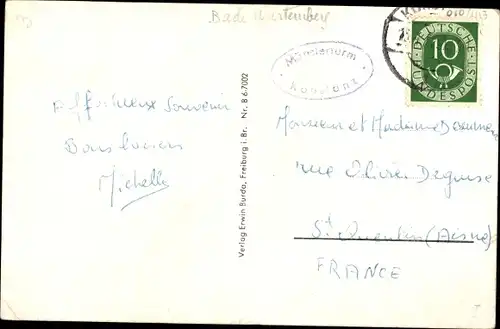 Bade Wurtemberg
Münsterturm
Konstanz
10
DEUTSCHE
BUNDESPOST
Affectueux Souvenir
Bons baisers
Michelle
Verlag Erwin Burda, Freiburg i. Br. Nr. B 6-7002
Monsieur et Madame
rue Olivier Deguise
St Quentin (Aisne)
FRANCE